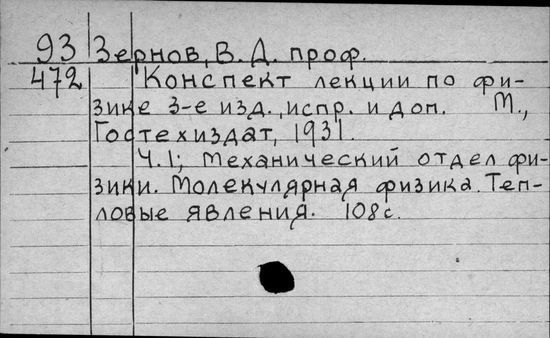 93 Зернов, В. Д. проф.
472 Конспект лекции по фи-
зике 3-е изд., испр. и доп. М.,
Гостехиздат, 1931.
Ч.1; Механический отдел фи-
зики. Молекулярная физика. Теп-
ловые явления. 108 с.